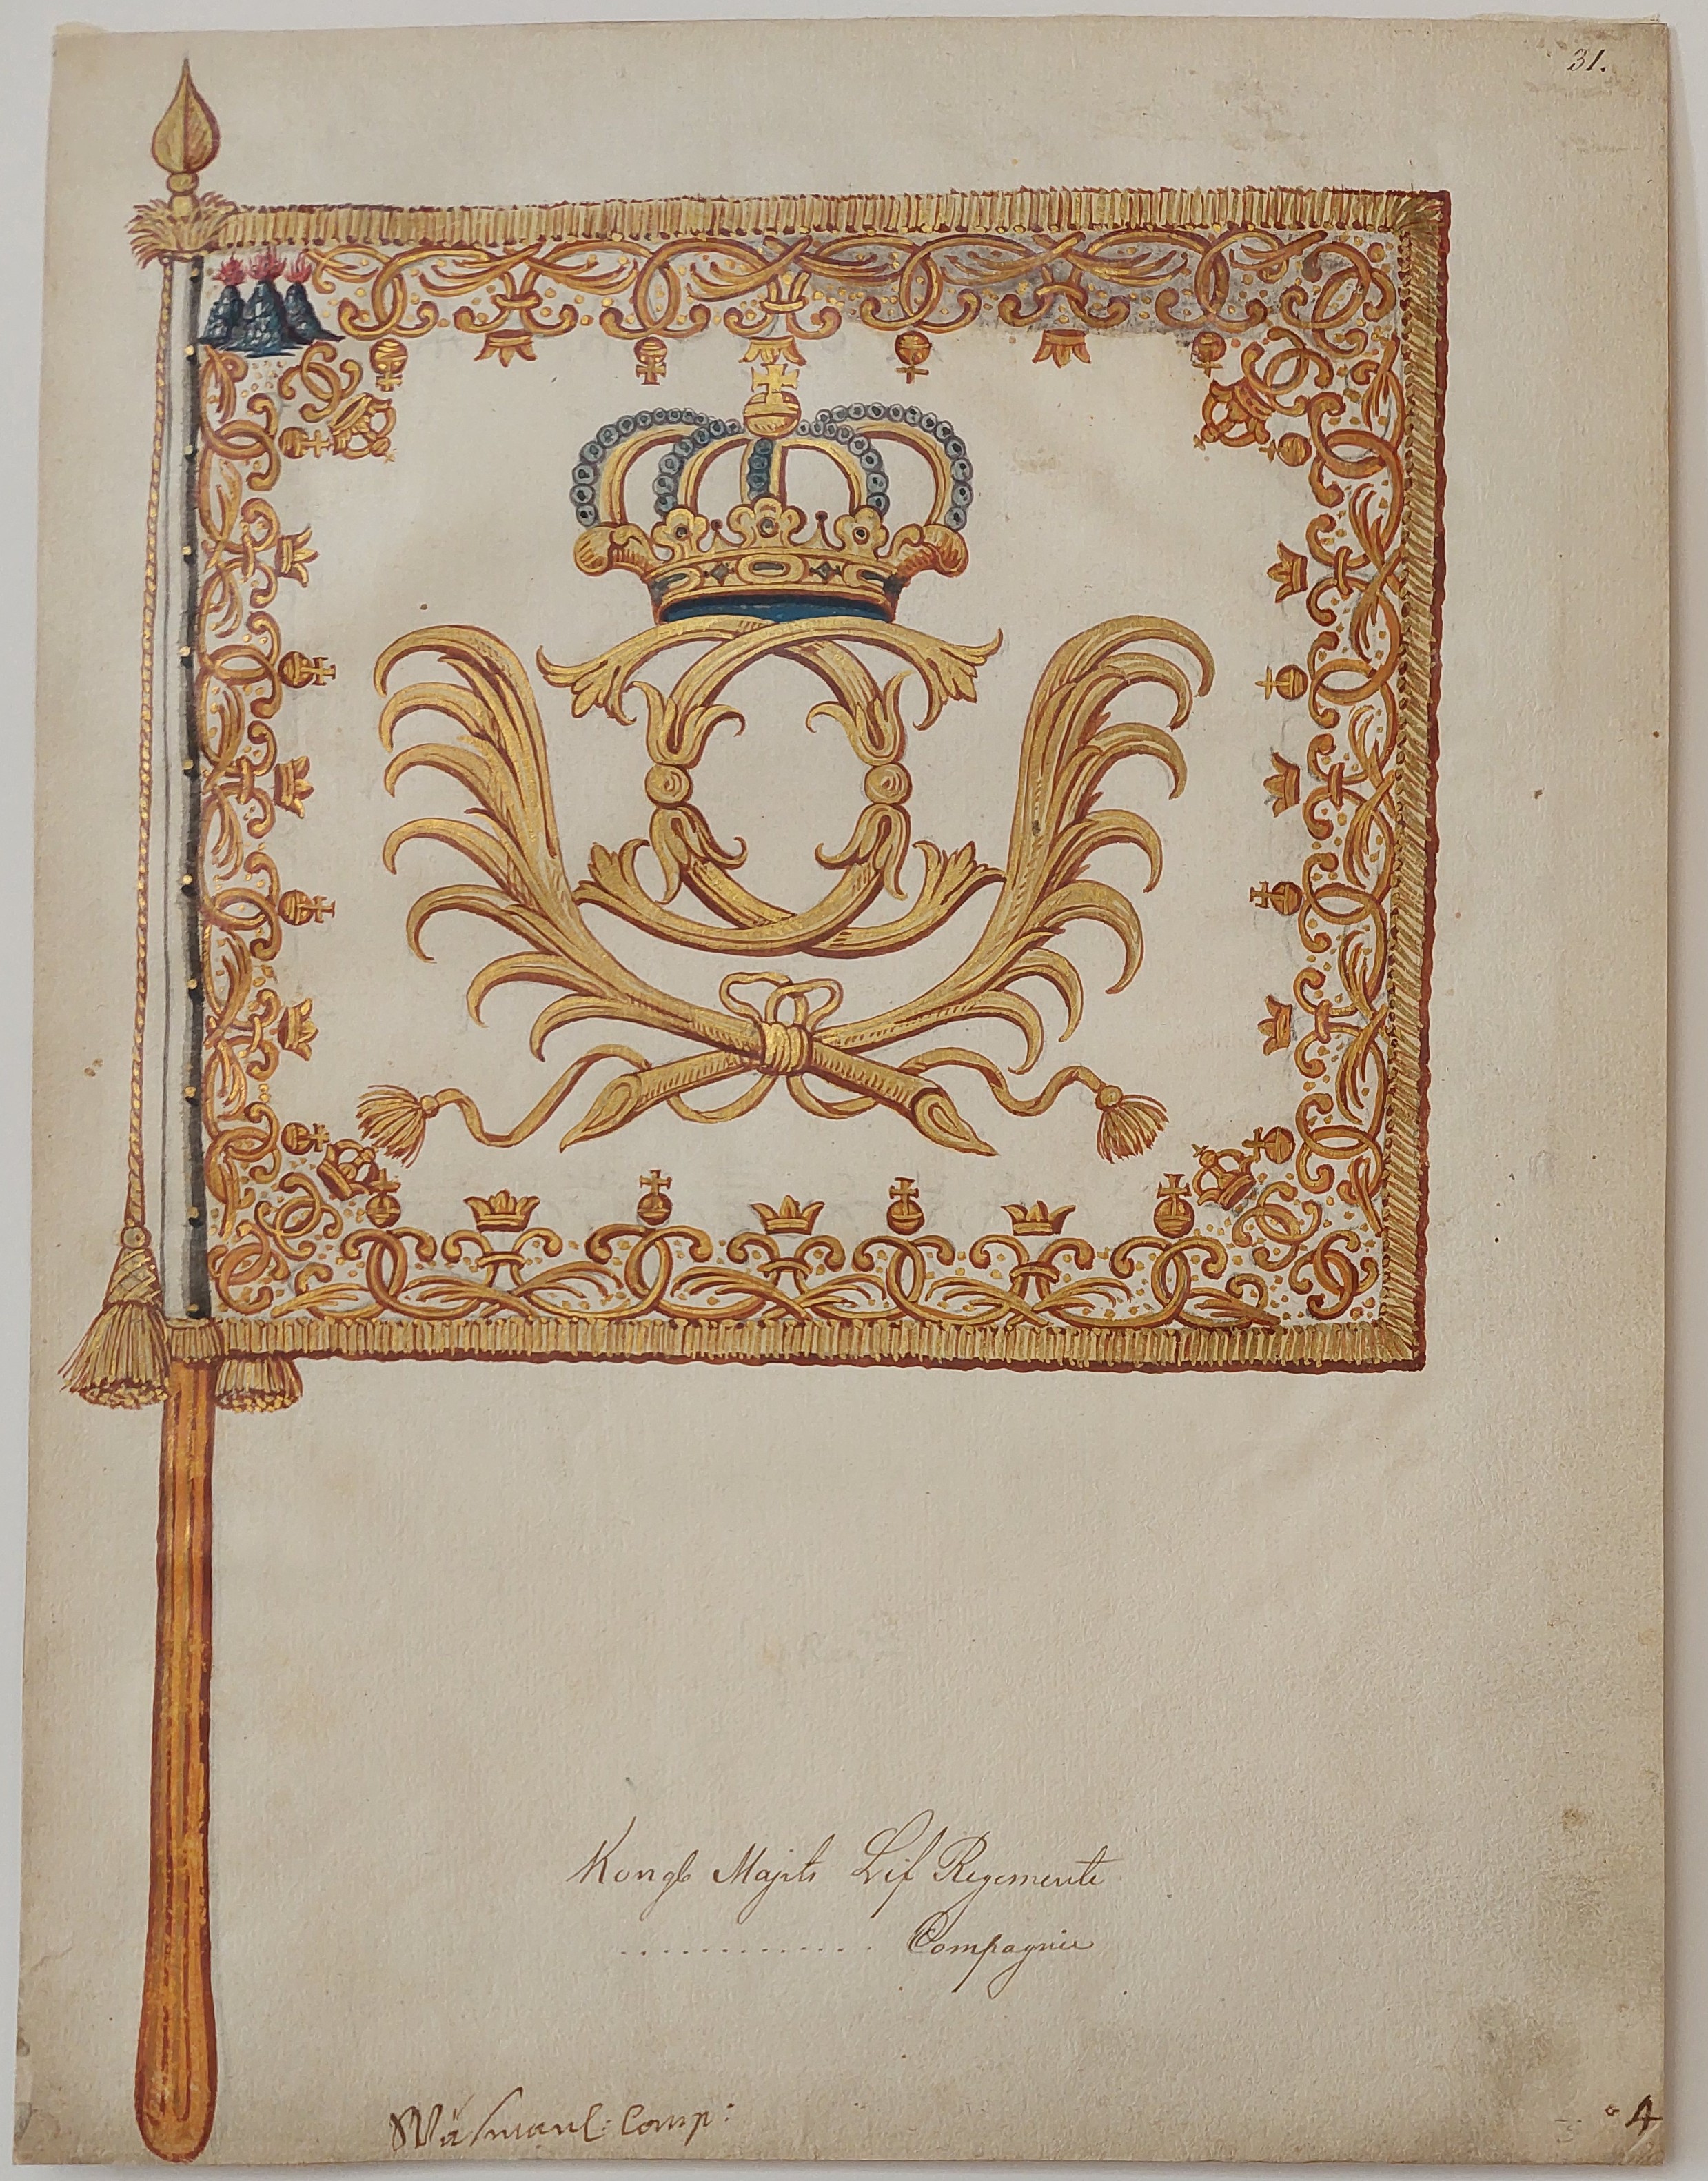 31.
Kongl Majts Lif Regemente
............. Compagnie
Wäsmanl: Comp:
4